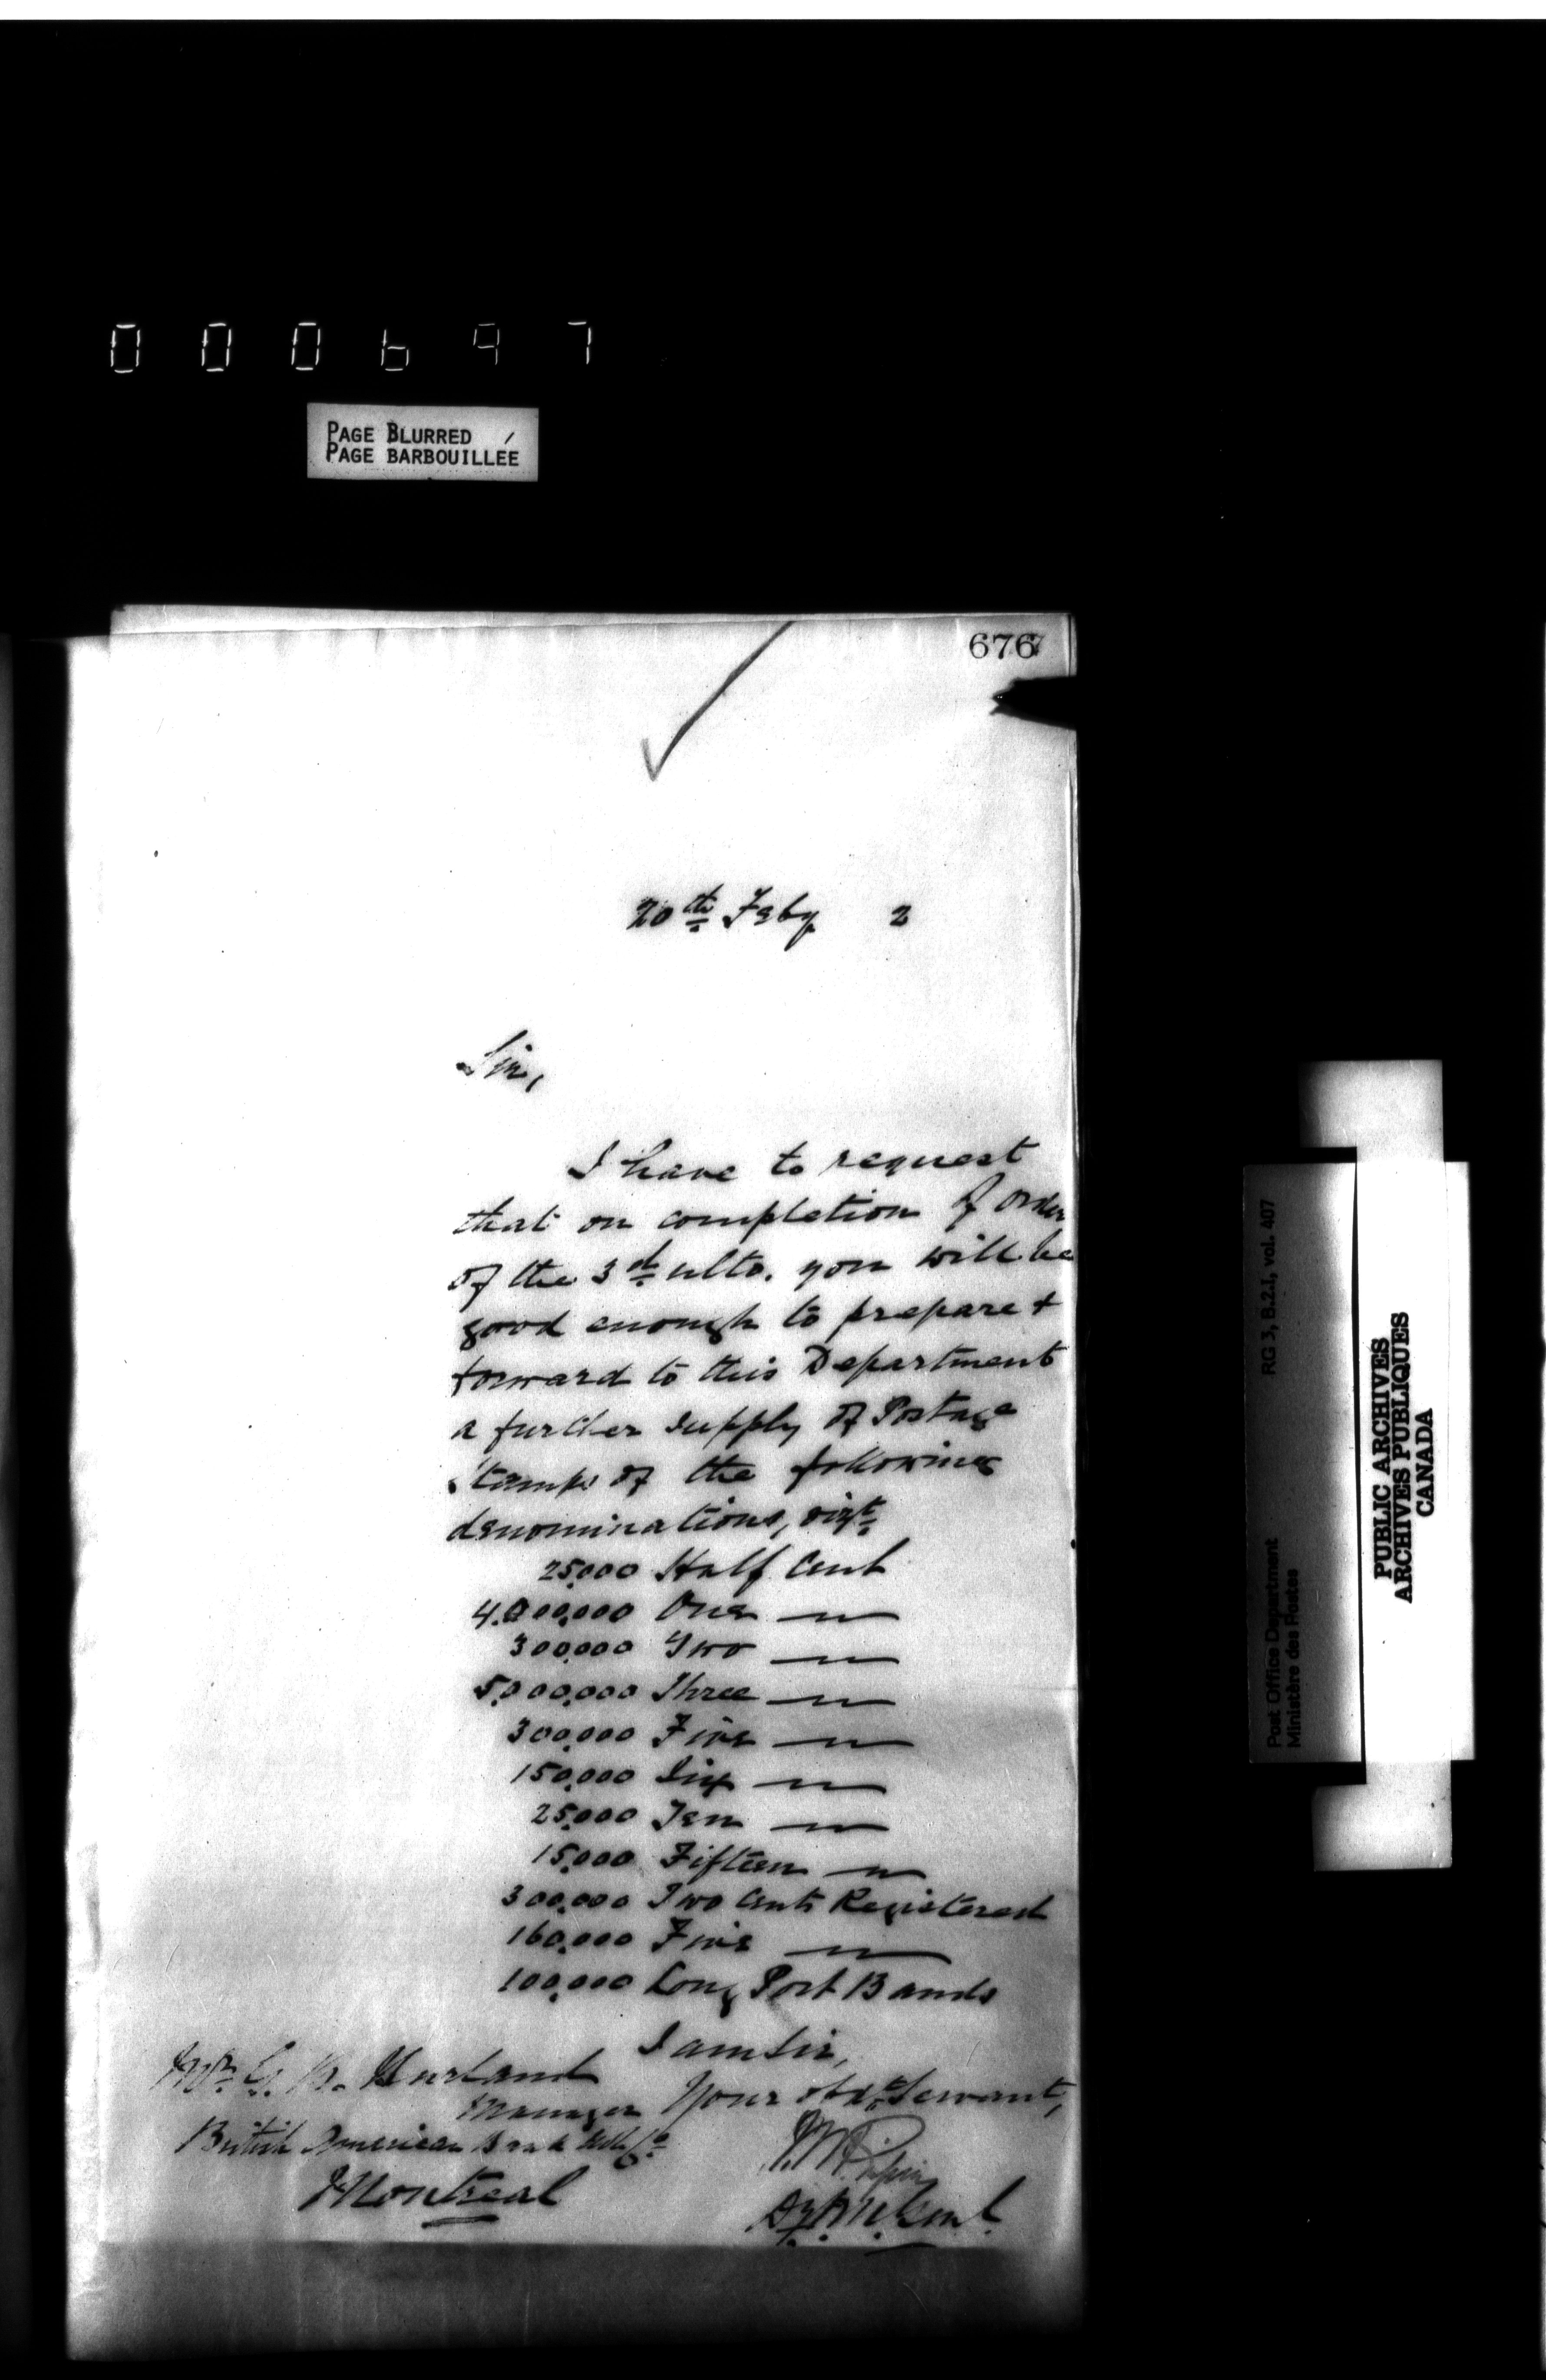 000697
PAGE BLURRED
PAGE BARBOUILLÉE
676
20th Feby 2
Sir,
I have to request
that on completion of order
of the 3d ulto. you will be
good enough to prepare +
forward to this Department
a further supply of Postage
Stamps of the following
denominations, vizt
25,000 Half Cent
4,000,000 One "
300,000 Two "
5,000,000 Three "
300,000 Five "
150,000 Six "
25,000 Ten "
15,000 Fifteen "
300,000 Two Cents Registered
160,000 Five "
100,000 Long Post Bands
I am Sir,
Your obdt Servant,
Mr G. B. Burland
Manager
British American Bank Note Co
Montreal
RG 3, B.2.I, vol. 407
Post Office Department
Ministère des Postes
PUBLIC ARCHIVES
ARCHIVES PUBLIQUES
CANADA